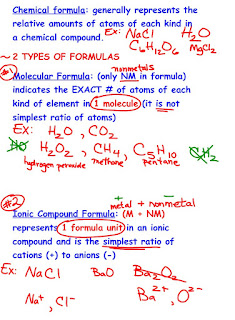 Chemical formula: generally represents the
relative amounts of atoms of each kind in
a chemical compound. Ex: NaCl H₂O
C₆H₁₂O₆ MgCl₂
~ 2 TYPES OF FORMULAS
#1 nonmetals
Molecular Formula: (only NM in formula)
indicates the EXACT # of atoms of each
kind of element in 1 molecule (it is not
simplest ratio of atoms)
Ex: H₂O, CO₂
NO H₂O₂, CH₄, C₅H₁₀ CH₂
hydrogen peroxide methane pentane
#2 metal + nonmetal
Ionic Compound Formula: (M + NM)
represents 1 formula unit in an ionic
compound and is the simplest ratio of
cations (+) to anions (-)
Ex: NaCl BaO Ba₂O₂
Na⁺, Cl⁻ Ba²⁺, O²⁻